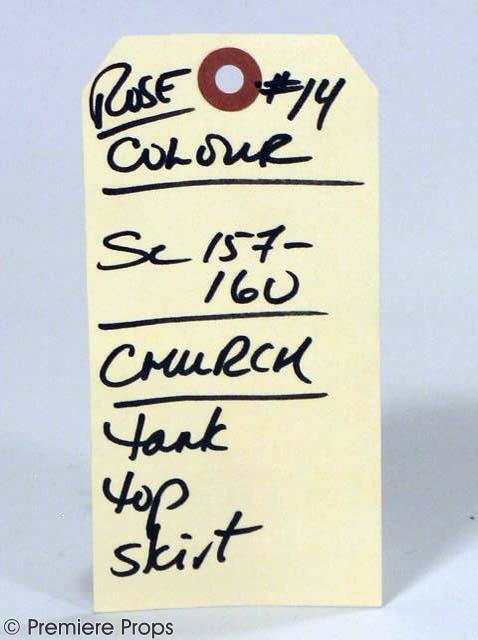 ROSE #14
COLOUR
Sc 157-
160
CHURCH
tank
top
skirt
© Premiere Props